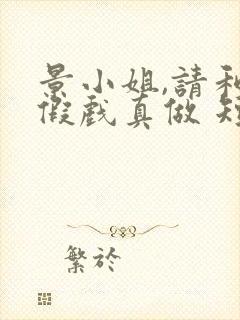 景小姐,請和
假戲真做 短
繁於